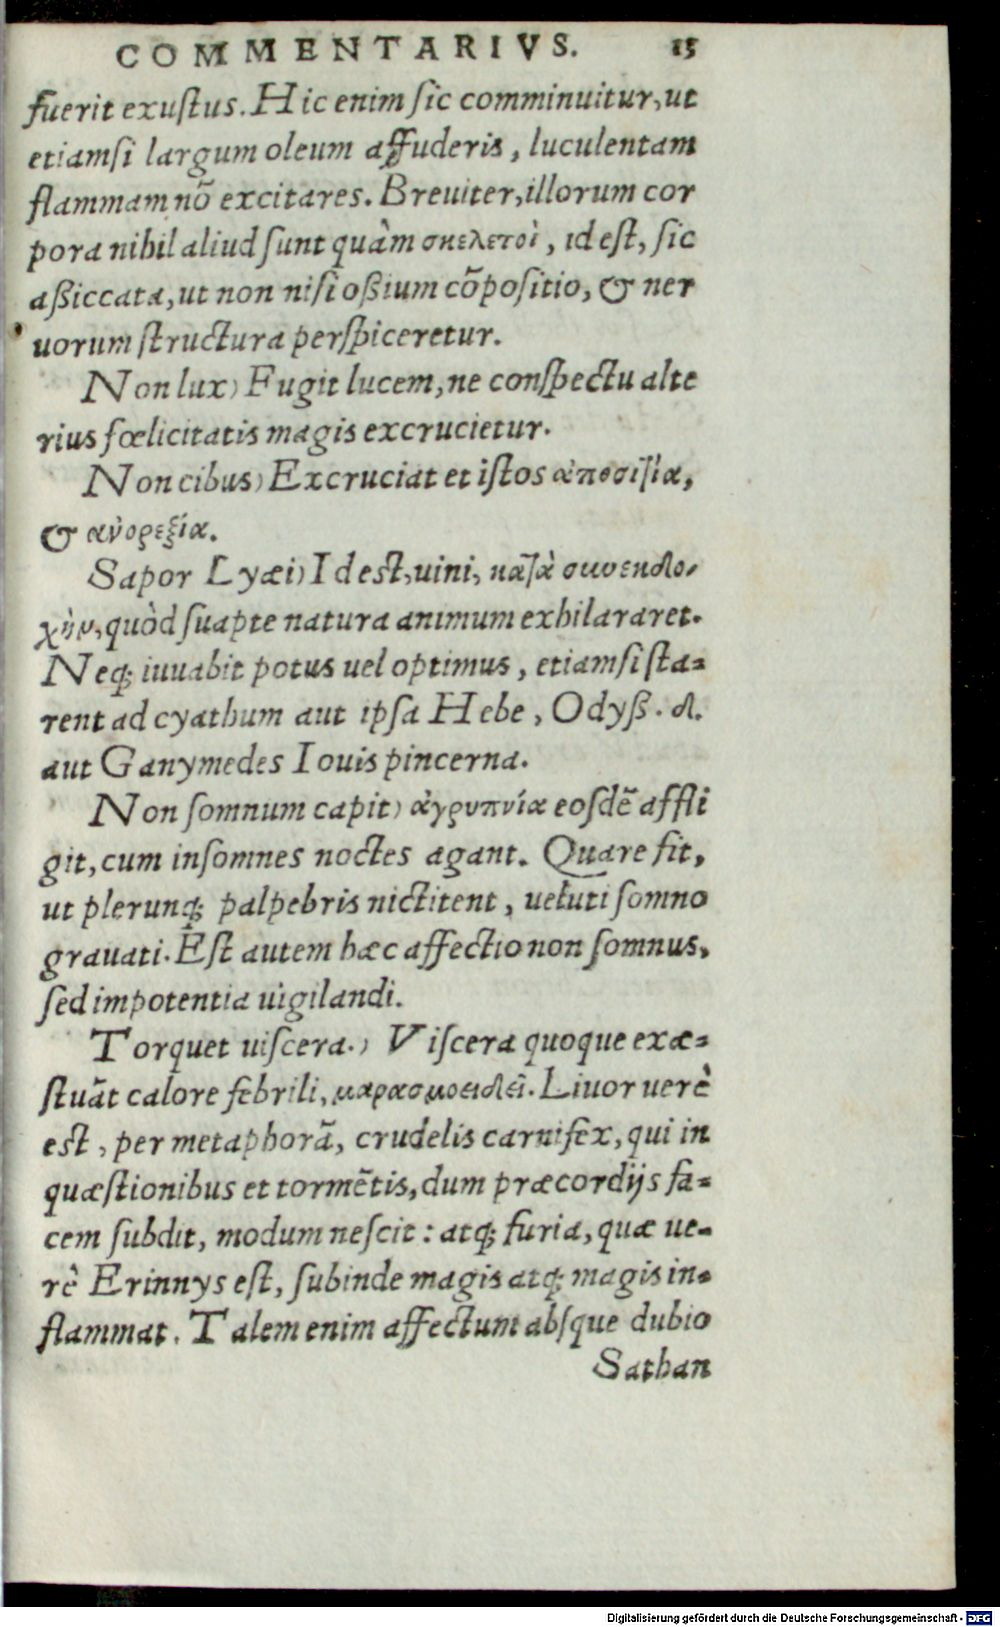 COMMENTARIVS. 15
fuerit exuſtus. Hic enim ſic comminuitur, ut
etiamſi largum oleum affuderis, luculentam
flammam nõ excitares. Breuiter, illorum cor
pora nihil aliud ſunt quàm σκελετοὶ, id eſt, ſic
aßiccata, ut non niſi oßium cõpoſitio, & ner
uorum ſtructura perſpiceretur.
Non lux) Fugit lucem, ne conſpectu alte
rius fœlicitatis magis excrucietur.
Non cibus) Excruciat et iſtos ἀποσιτία,
& ἀνορεξία.
Sapor Lyæi) Id eſt, uini, κατὰ συνεκδο-
χὴν, quòd ſuapte natura animum exhilararet.
Neq; iuuabit potus uel optimus, etiamſi ſta-
rent ad cyathum aut ipſa Hebe, Odyß. δ.
aut Ganymedes Iouis pincerna.
Non ſomnum capit) ἀγρυπνία eoſdẽ affli
git, cum inſomnes noctes agant. Quare fit,
ut plerunq; palpebris nictitent, ueluti ſomno
grauati. Eſt autem hæc affectio non ſomnus,
ſed impotentia uigilandi.
Torquet uiſcera.) Viſcera quoque exæ-
ſtuãt calore febrili, μαρασμοειδεῖ. Liuor uerè
eſt, per metaphorã, crudelis carnifex, qui in
quæſtionibus et tormẽtis, dum præcordijs fa-
cem ſubdit, modum neſcit: atq; furia, quæ ue-
rè Erinnys eſt, ſubinde magis atq; magis in-
flammat. Talem enim affectum abſque dubio
Sathan
Digitalisierung gefördert durch die Deutsche Forschungsgemeinschaft - DFG